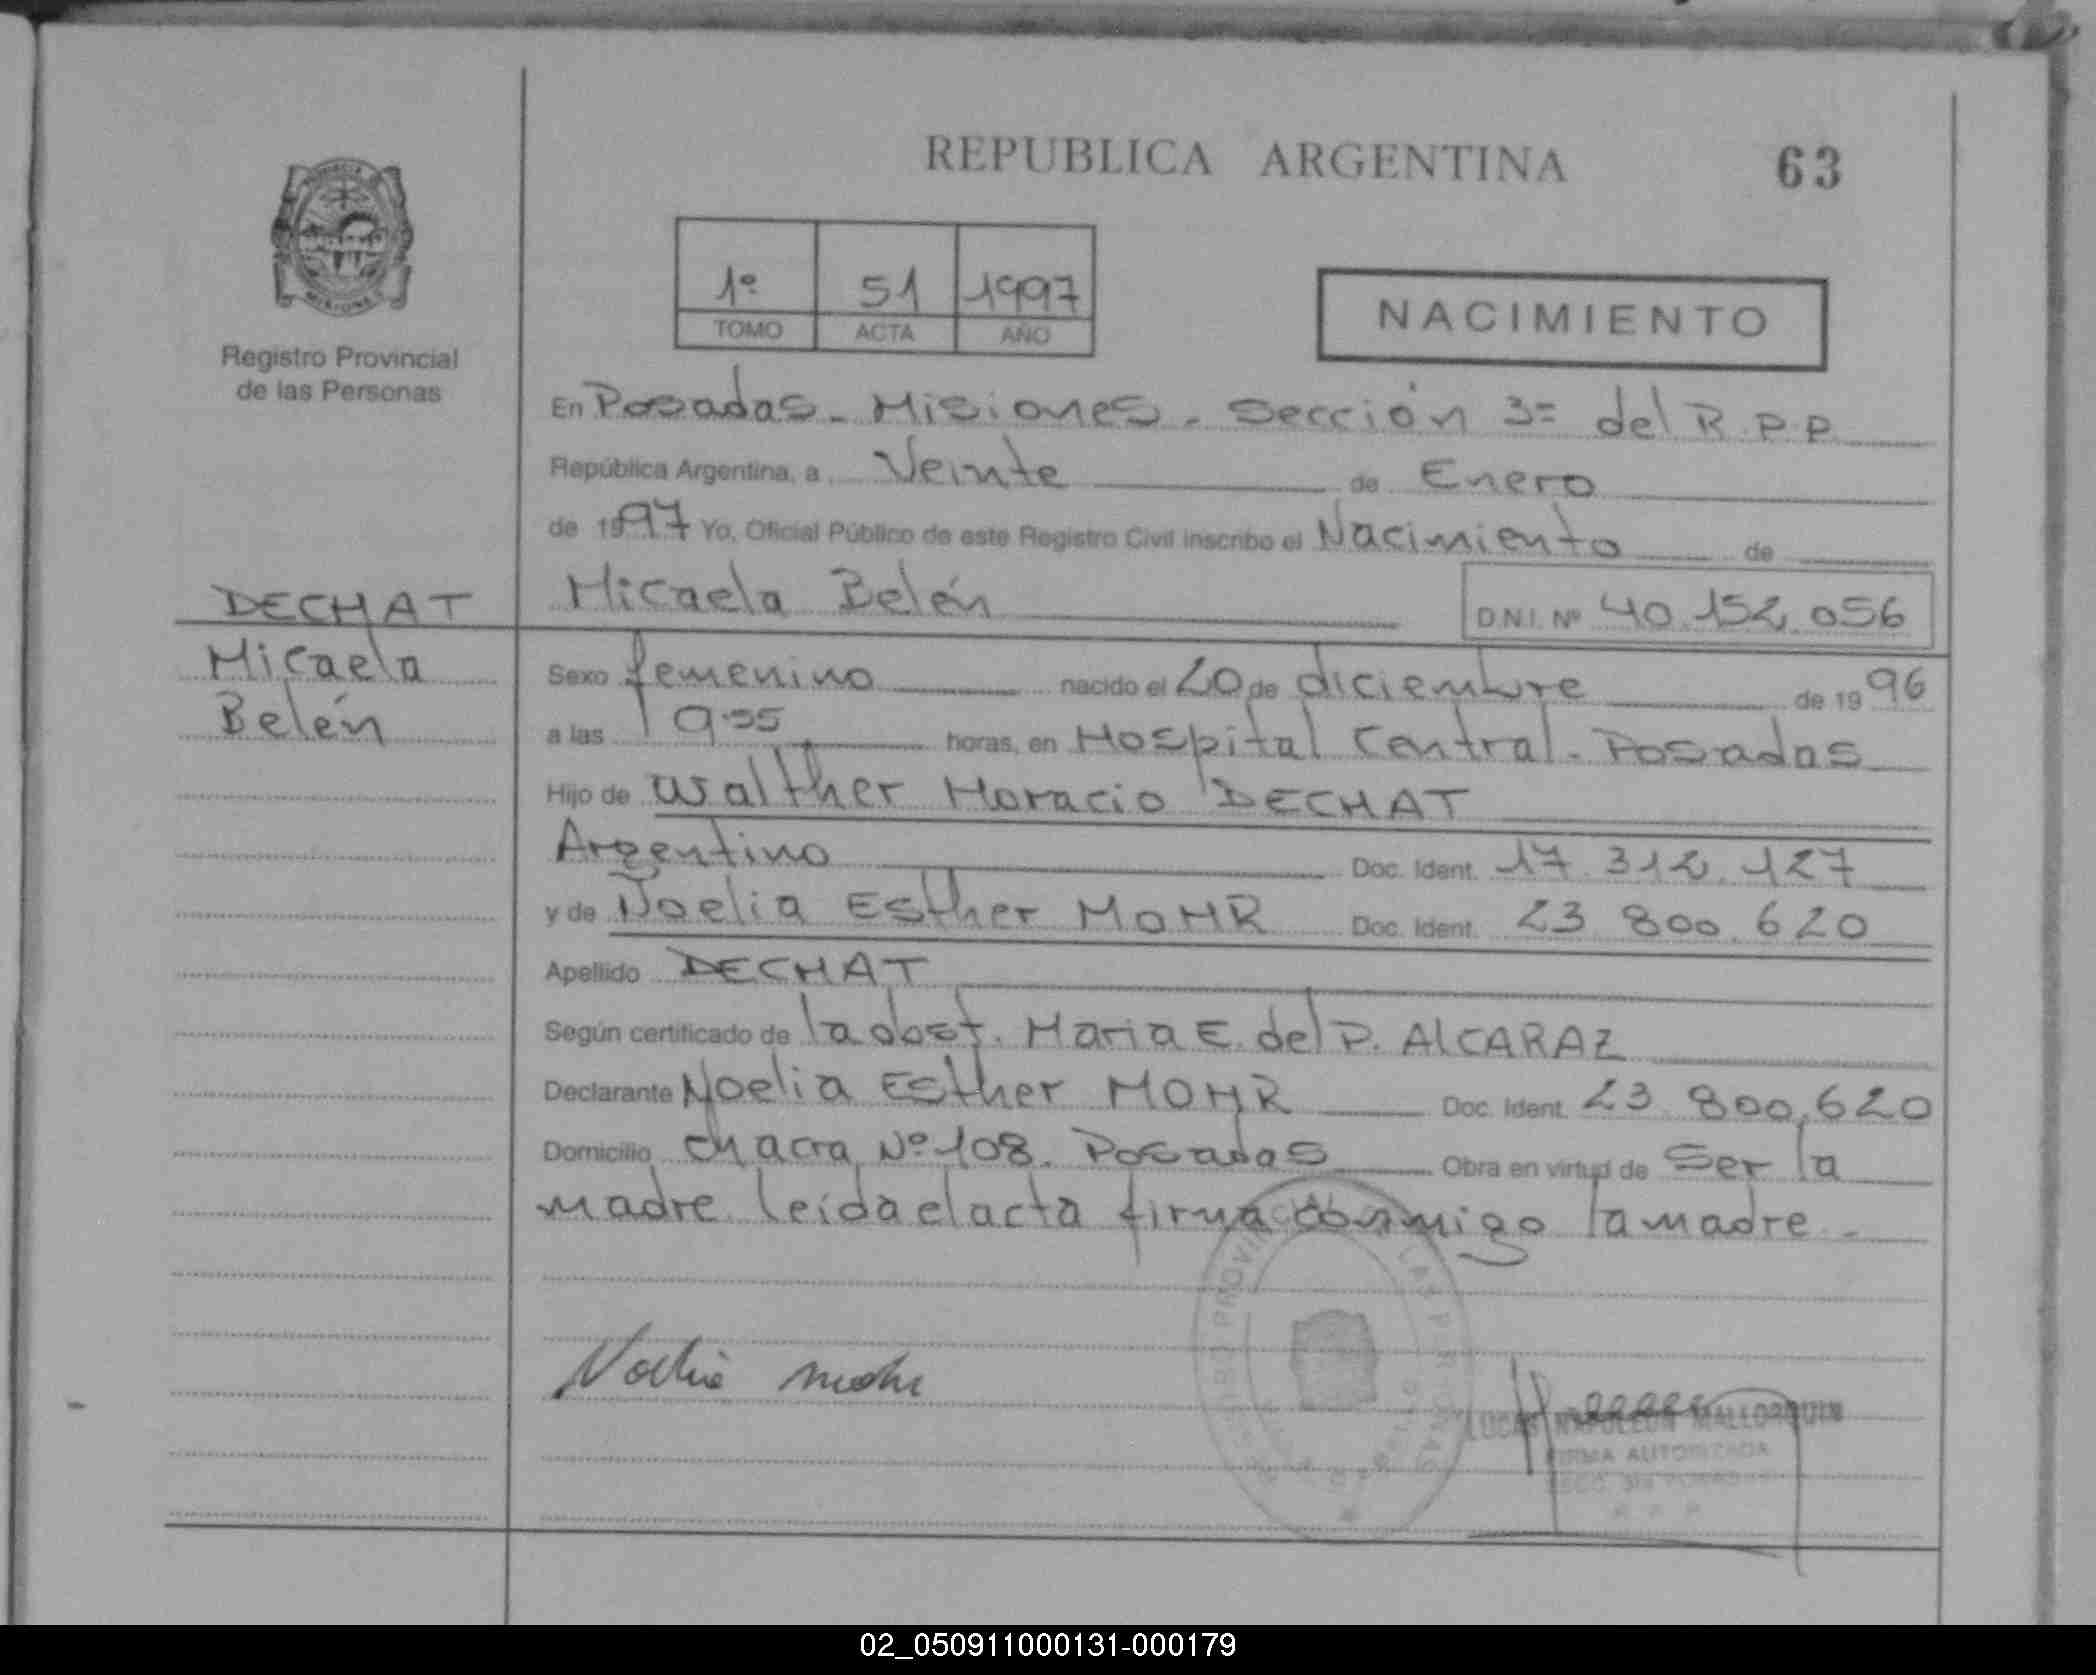 REPUBLICA ARGENTINA 63
1º 51 1997
TOMO ACTA AÑO
NACIMIENTO
Registro Provincial
de las Personas
En Posadas - Misiones - Sección 3= del R.P.P.
República Argentina, a Veinte de Enero
de 1997 Yo, Oficial Público de este Registro Civil inscribo el Nacimiento de
DECHAT
Micaela
Belén
Micaela Belén D.N.I. Nº 40.152.056
Sexo femenino nacido el 20 de diciembre de 1996
a las 9.55 horas, en Hospital Central - Posadas
Hijo de Walther Horacio DECHAT
Argentino Doc. Ident. 17.312.127
y de Noelia Esther MOHR Doc. Ident. 23.800.620
Apellido DECHAT
Según certificado de la obst. Maria E. del P. AlCARAZ
Declarante Noelia Esther MOHR Doc. Ident. 23.800.620
Domicilio chacra Nº 108. Posadas Obra en virtud de Ser la
madre. leída el acta firma conmigo la madre -
Noelia Mohr
LUCAS NAPOLEON MALLORQUIN
FIRMA AUTORIZADA
02_050911000131-000179